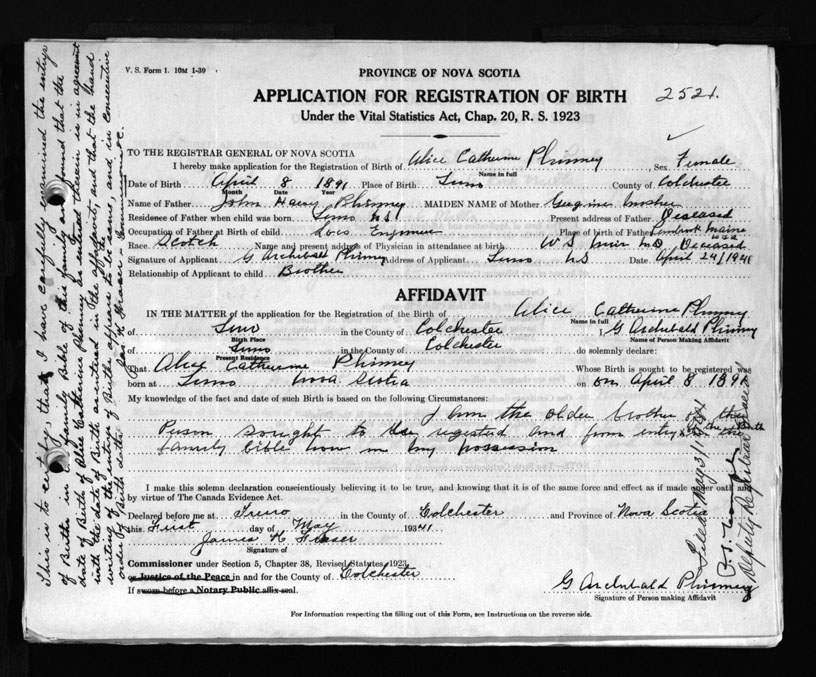 V. S. Form 1. 10M 1-39
PROVINCE OF NOVA SCOTIA
APPLICATION FOR REGISTRATION OF BIRTH 2521.
Under the Vital Statistics Act, Chap. 20, R. S. 1923
TO THE REGISTRAR GENERAL OF NOVA SCOTIA
I hereby make application for the Registration of Birth of Alice Catherine Phinney Sex Female
Name in full
Date of Birth April 8 1891 Place of Birth Truro County of Colchester
Month Day Year
Name of Father John Harry Phinney MAIDEN NAME of Mother Georgina Mosher
Residence of Father when child was born Truro NS Present address of Father Deceased
Occupation of Father at Birth of child Loco Engineer Place of birth of Father Pembroke Maine USA
Race Scotch Name and present address of Physician in attendance at birth W S Muir MD Deceased
Signature of Applicant G Archibald Phinney Address of Applicant Truro NS Date April 24/1941
Relationship of Applicant to child Brother
AFFIDAVIT
IN THE MATTER of the application for the Registration of the Birth of Alice Catherine Phinney
Name in full
of Truro in the County of Colchester I G Archibald Phinney
Birth Place Name of Person Making Affidavit
of Truro in the County of Colchester do solemnly declare:
Present Residence
That Alice Catherine Phinney Whose Birth is sought to be registered was
born at Truro Nova Scotia on on April 8 1891
My knowledge of the fact and date of such Birth is based on the following Circumstances:
I am the older brother of the
Person sought to be registered and from entry of the Birth in the
family bible now in my possession
I make this solemn declaration conscientiously believing it to be true, and knowing that it is of the same force and effect as if made under oath and
by virtue of The Canada Evidence Act.
Declared before me at Truro in the County of Colchester and Province of Nova Scotia
this First day of May 1941
James H Fraser
Signature of
Commissioner under Section 5, Chapter 38, Revised Statutes, 1923
or Justice of the Peace in and for the County of Colchester
If sworn before a Notary Public affix seal.
G Archibald Phinney
Signature of Person making Affidavit
For Information respecting the filling out of this Form, see Instructions on the reverse side.
This is to certify, that I have carefully examined the entry
of Births in family Bible of this family and found that the
date of Birth of Alice Catherine Phinney as entered therein is in agreement
with the date of Birth as stated in the affidavit, and that the hand
writing of the entrys of Births appears to be the same, and in consecutive
order of Birth dates. Jas. H. Fraser - Commissioner &c.
Filed May 31/1941
Deputy Registrar